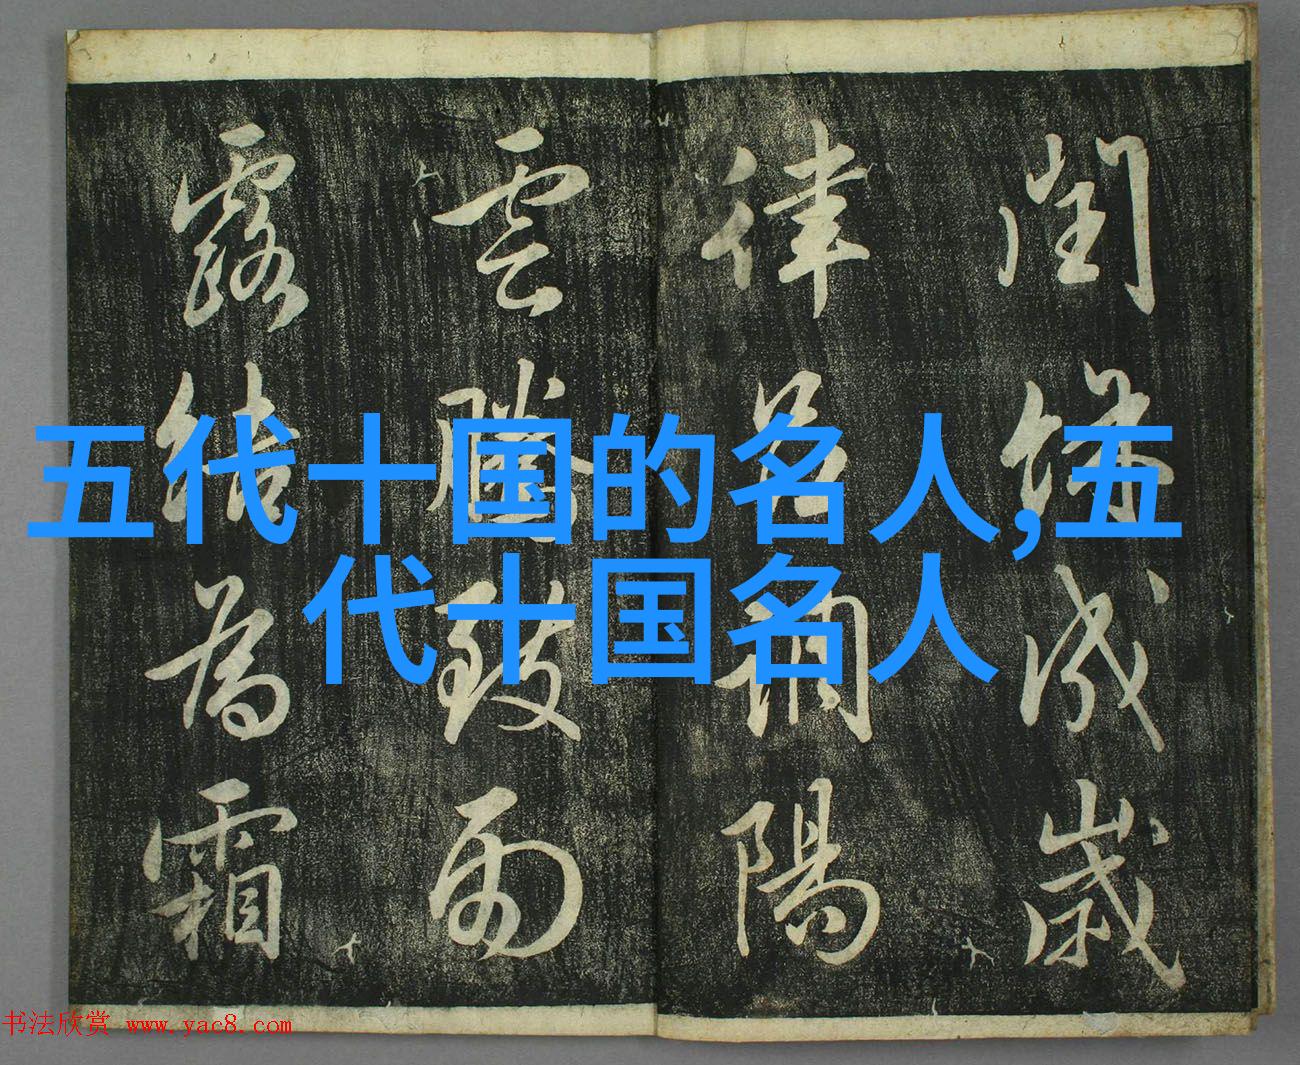 閏餘成歲
律呂調陽
雲騰致雨
露結為霜
五代十国的名人,五
代十国名人
书法欣赏 www.yac8.com